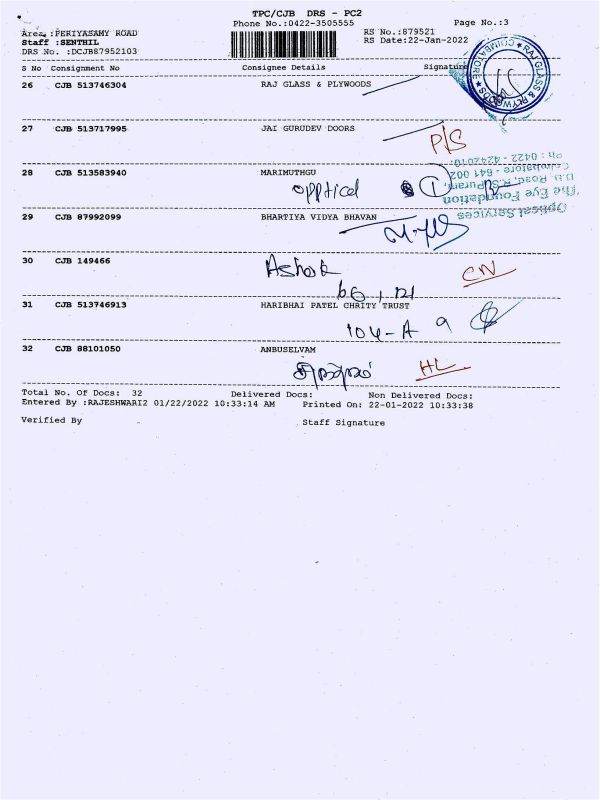 TPC/CJB DRS - PC2
Phone No.:0422-3505555 Page No.:3
Area :PERIYASAMY ROAD RS No.:879521
Staff :SENTHIL RS Date:22-Jan-2022
DRS No. :DCJB87952103
S No Consignment No Consignee Details Signature
26 CJB 513746304 RAJ GLASS & PLYWOODS
RAJ GLASS & PLYWOODS ★ COIMBATORE ★
27 CJB 513717995 JAI GURUDEV DOORS
P/S
28 CJB 513583940 MARIMUTHGU
opptical 1
Optical Services
The Eye Foundation
D.B. Road, R.S. Puram,
Coimbatore - 641 002
Ph : 0422 - 4242010.
29 CJB 87992099 BHARTIYA VIDYA BHAVAN
30 CJB 149466 Ashok
CN
31 CJB 513746913 HARIBHAI PATEL CHRITY TRUST
104-A 9
32 CJB 88101050 ANBUSELVAM
HL
Total No. Of Docs: 32 Delivered Docs: Non Delivered Docs:
Entered By :RAJESHWARI2 01/22/2022 10:33:14 AM Printed On: 22-01-2022 10:33:38
Verified By Staff Signature